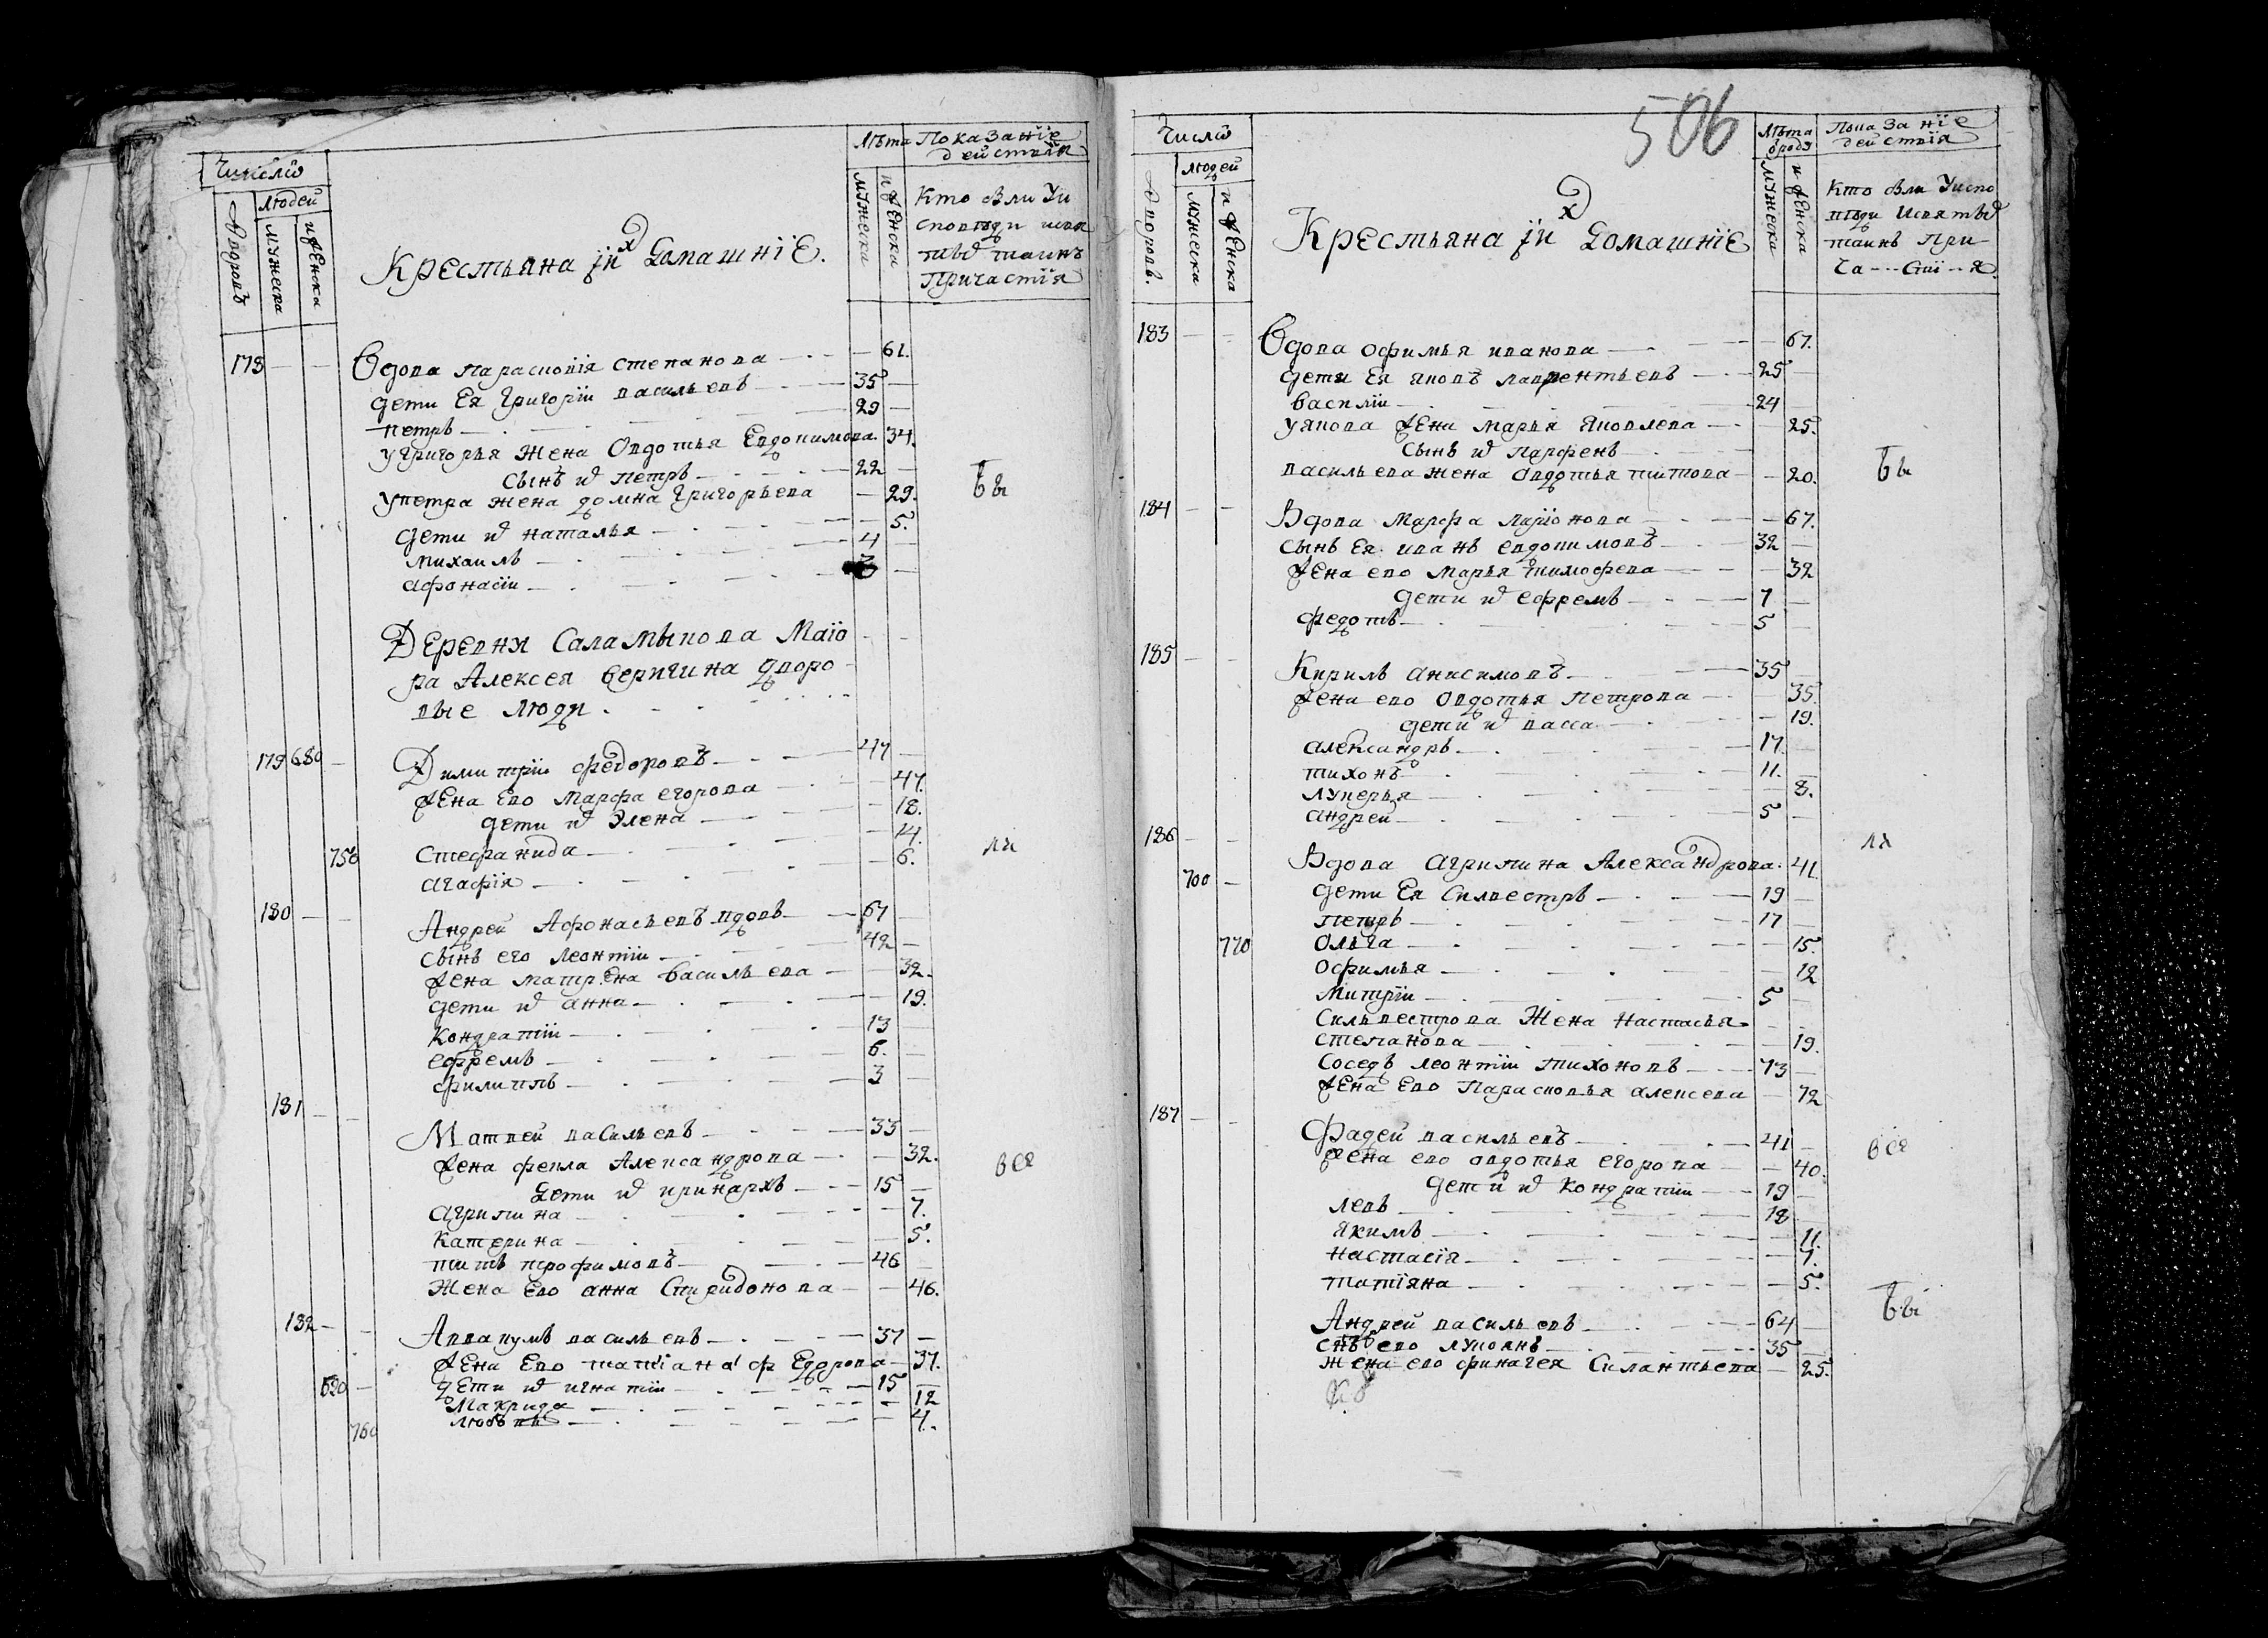 Число
Людей
Дворовъ
мужеска
и женска
Крестьяна їи Домашнїе.
Лѣта
мужеска
и женска
Показанїе
действїя
Кто были Уи
сповѣди исвя
тыхъ таинъ
Причастїя
178 — — Вдова парасковїя степанова — 61.
дети Ея Григорїи васильевъ — 35 —
петръ — 29 —
угригорья жена Овдотья Евдокимова. 34.
сынъ их петръ — 22 —
упетра жена домна григорьева — 29.
дети их наталья — 5.
михаилъ — 4 —
афонасїи — 3 —
Бы
Деревни Саламыкова Маїо
ра Алексея веригина дворо
вые люди
179 680 — Димитрїи федоровъ — 47 —
жена Ево Марфа егорова — 47.
дети их Элена — 18.
Стефанида — 14.
756 агафїя — 6.
ли
180 — — Андрей Афонасьевъ вдовъ — 67 —
сынъ его леонтїи — 42 —
жена матрена васильева — 32.
дети их анна — 19.
Кондратїи — 13
ефремъ — 6.
филиппъ — 3
181 — — Матвей васильевъ — 33 —
жена фекла Александрова — 32.
дети их иринархъ — 15 —
агрипина — 7.
катерина — 5.
титъ трофимовъ — 46
жена Ево анна Спиридонова — 46.
все
182 — — Аввакумъ васильевъ — 37 —
жена Ево татїана федорова — 37.
690 — дети их игнатїи — 15 —
Макрида — 12
760 любовь — 4.
506
Число
Людей
Дворовъ.
мужеска
и женска
Крестьяна їи Домашнїе
Лѣта
ѿроду
мужеска
и женска
Показанїе
действїя
Кто были Уиспо
вѣди Исвятых
таинъ При
ча---стї--я.
183 — — Вдова офимья иванова — 67.
дети Ея яковъ лаврентьевъ — 25 —
Василїи — 24
уякова жена марья яковлева — 25.
сынъ их парфенъ —
васильева жена Овдотья титова — 20.
Бы
184 — — Вдова Марфа ларїонова — 67.
сынъ Ея иванъ евдокимовъ — 32 —
жена ево марья тимофева — 32
дети их ефремъ — 7 —
федотъ — 5
185 — — Кирилъ анисимовъ — 35
жена ево Овдотья петрова — 35.
дети их васса — 19.
александръ — 17
тихонъ — 11. —
лукерья — 8.
андрей — 5 —
186 — — Вдова агрипина Александрова. 41.
ли
700 — дети Ея Силвестръ — 19 —
петръ — 17
770 Ольга — 15.
офимья — 12
митрїи — 5 —
Сильвестрова Жена настасья
степанова — 19.
Соседъ леонтїи тихоновъ — 73 —
жена Ево Парасковья алексева — 72
187 — — Фадей васильевъ — 41 —
жена ево овдотья егорова — 40.
дети их Кондратїи — 19 —
левъ — 18 —
якимъ — 11.
настасїя — 7.
татїяна — 5.
все
Андрей васильевъ — 64 —
снъ ево лукоянъ — 35 —
жена ево финагея Силантьева — 25.
Бы